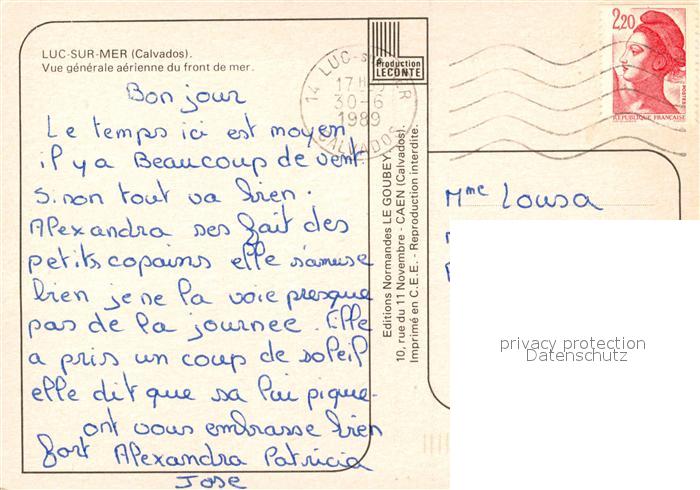 LUC-SUR-MER (Calvados).
Vue générale aérienne du front de mer.
Production
LECONTE
14 LUC-s-MER
17 H
30-6
1989
CALVADOS
2,20
POSTES
REPUBLIQUE FRANÇAISE
Bonjour
Le temps ici est moyen
il y a Beaucoup de vent.
Sinon tout va bien.
Alexandra ses fait des
petits copains elle s'amuse
bien je ne la voie presque
pas de la journee. Elle
a pris un coup de soleil
elle dit que sa lui pique.
ont vous embrasse bien
fort Alexandra Patricia
Jose
Editions Normandes LE GOUBEY
10, rue du 11 Novembre - CAEN (Calvados).
Imprimé en C.E.E. - Reproduction interdite.
Mme Lousa
privacy protection
Datenschutz